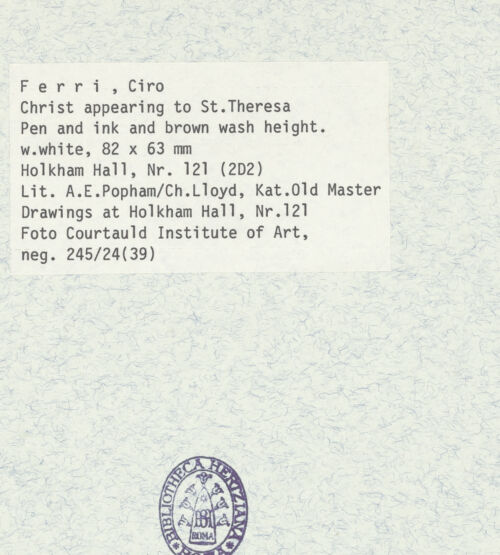 F e r r i , Ciro
Christ appearing to St.Theresa
Pen and ink and brown wash height.
w.white, 82 x 63 mm
Holkham Hall, Nr. 121 (2D2)
Lit. A.E.Popham/Ch.Lloyd, Kat.Old Master
Drawings at Holkham Hall, Nr.121
Foto Courtauld Institute of Art,
neg. 245/24(39)
BIBLIOTHECA HERTZIANA
ROMA
ROMA